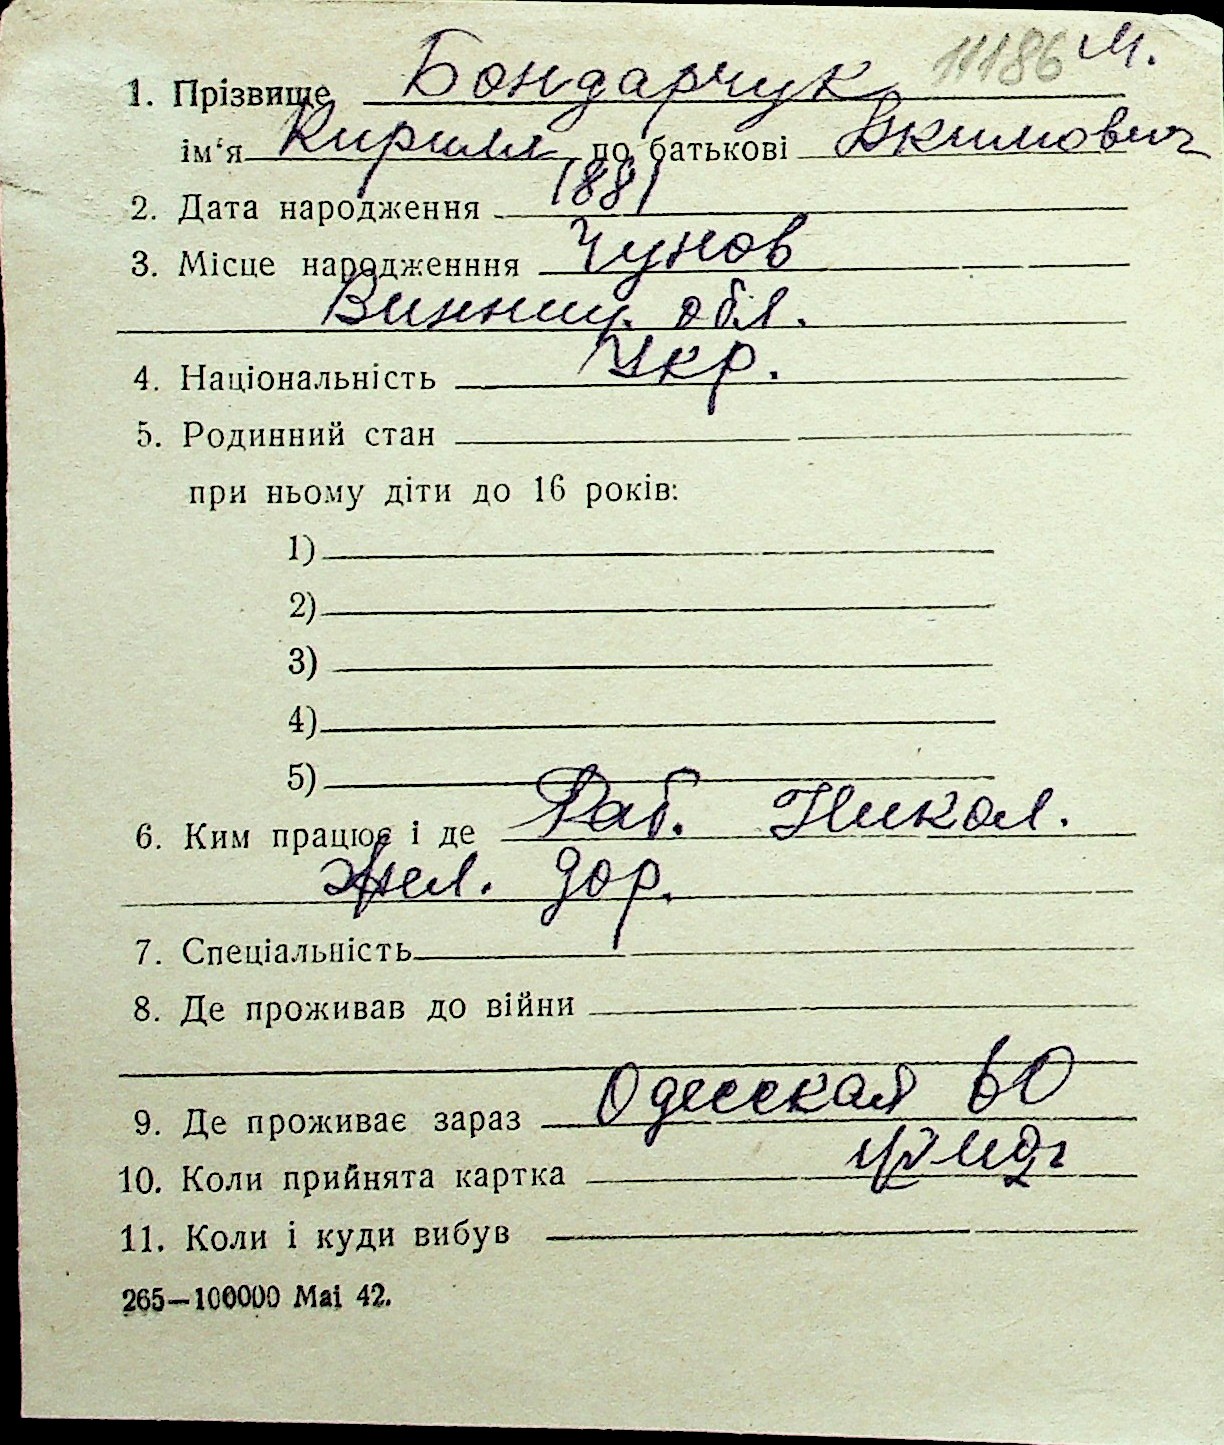 11186 М.
1. Прізвище Бондарчук
ім‘я Кирилл по батькові Якимович
2. Дата народження 1881
3. Місце народженння Чунов
Винниц. обл.
4. Національність Укр.
5. Родинний стан
при ньому діти до 16 років:
1)
2)
3)
4)
5)
6. Ким працює і де Раб. Никол.
жел. дор.
7. Спеціальність
8. Де проживав до війни
9. Де проживає зараз Одесская 60
10. Коли прийнята картка
11. Коли і куди вибув
265—100000 Mai 42.